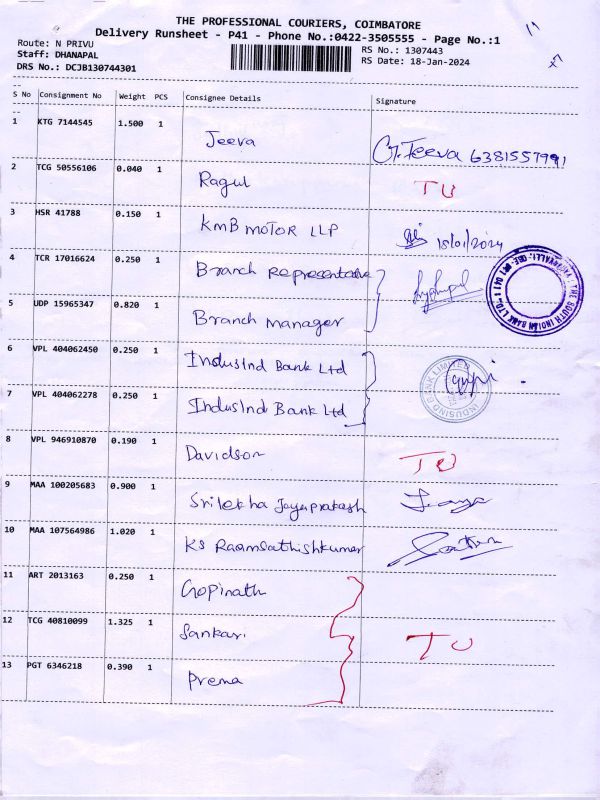 THE PROFESSIONAL COURIERS, COIMBATORE
Delivery Runsheet - P41 - Phone No.:0422-3505555 - Page No.:1
Route: N PRIVU
RS No.: 1307443
Staff: DHANAPAL
RS Date: 18-Jan-2024
DRS No.: DCJB130744301
S No Consignment No Weight PCS Consignee Details Signature
1 KTG 7144545 1.500 1 Jeeva G.Jeeva 6381557991
2 TCG 50556106 0.040 1 Ragul TU
3 HSR 41788 0.150 1 KMB MOTOR LLP 18/01/2024
4 TCR 17016624 0.250 1 Branch Representative
5 UDP 15965347 0.820 1 Branch Manager
THE SOUTH INDIAN BANK LTD.
6 VPL 404062450 0.250 1 IndusInd Bank Ltd
7 VPL 404062278 0.250 1 IndusInd Bank Ltd
INDUSIND BANK LIMITED
8 VPL 946910870 0.190 1 Davidson TU
9 MAA 100205683 0.900 1 Srilekha Jayaprakash
10 MAA 107564986 1.020 1 KS Raamsathishkumar
11 ART 2013163 0.250 1 Gopinath
12 TCG 40810099 1.325 1 Sankari TU
13 PGT 6346218 0.390 1 Prema